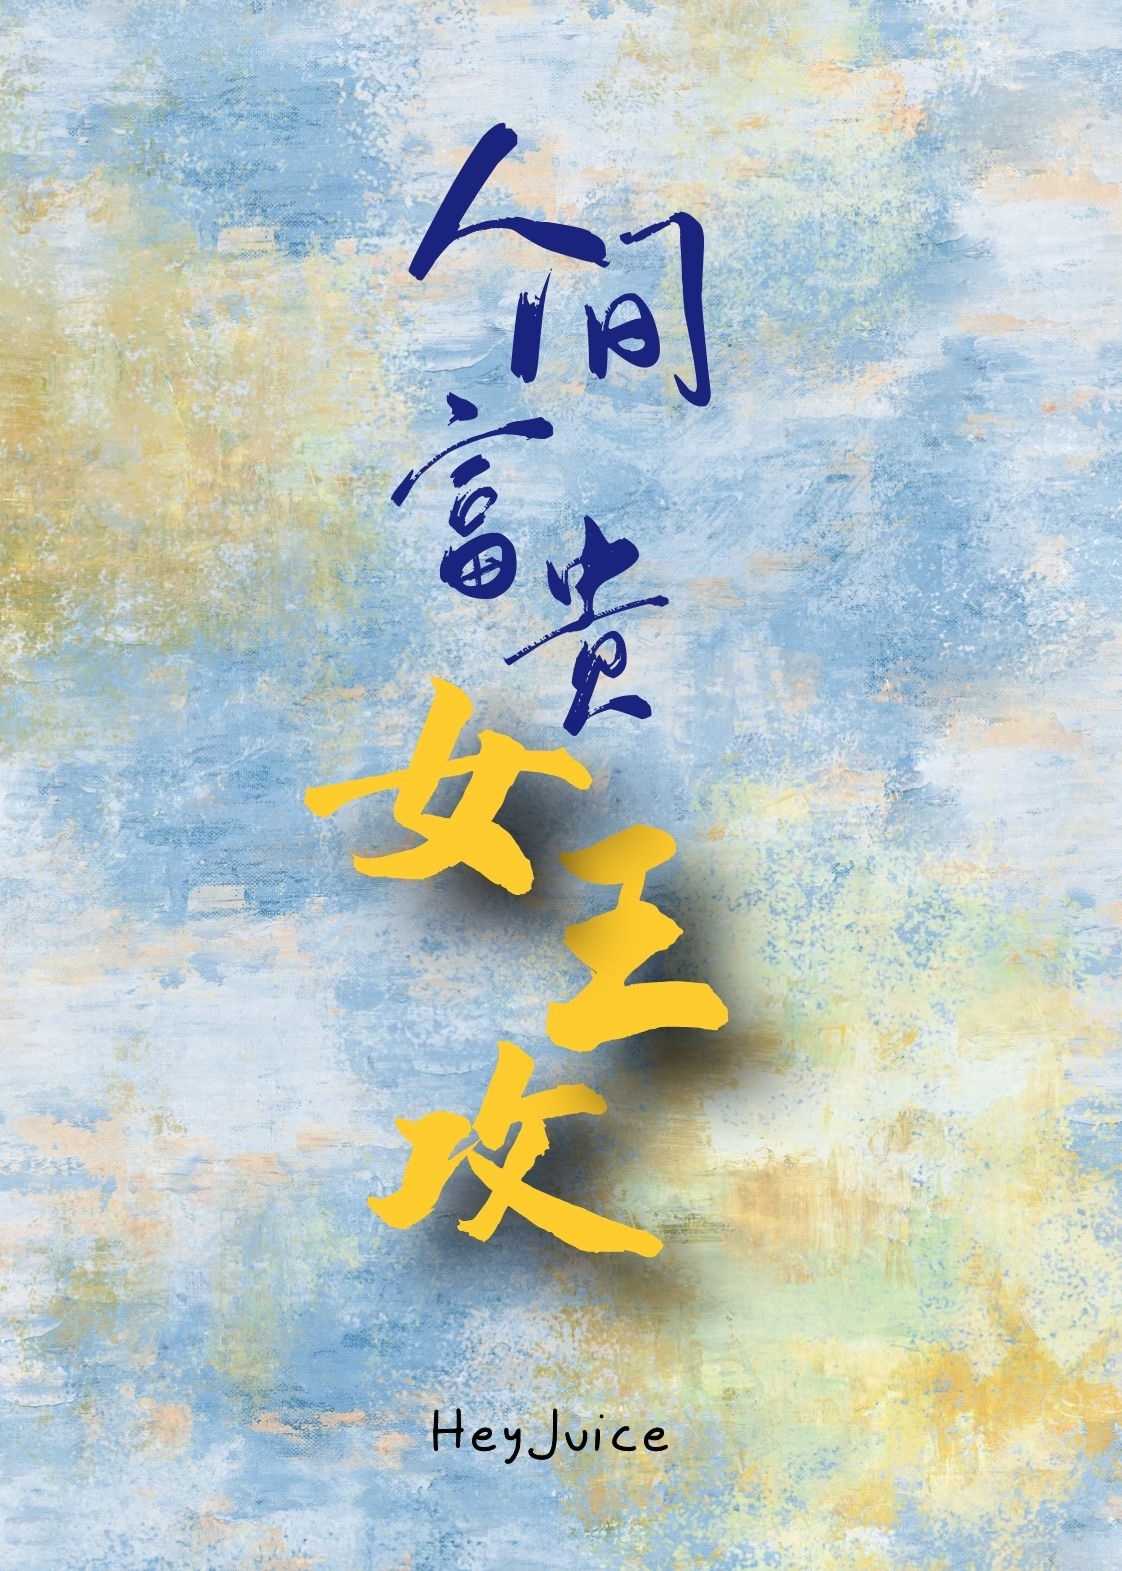 人间
富贵
女王
攻
HeyJuice